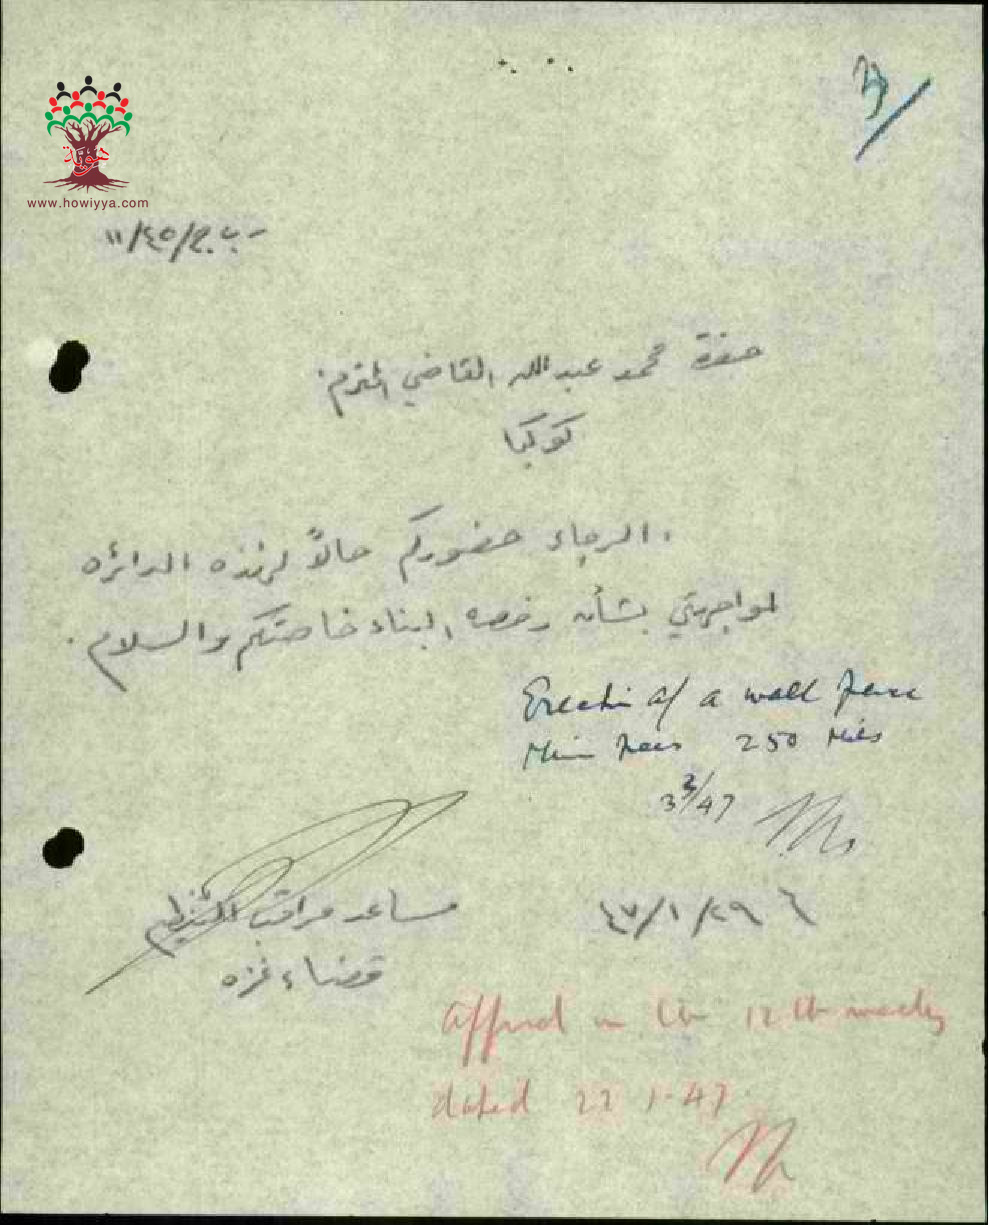 هوية
www.howiyya.com
ر ب ج/٤٥/١١
حضرة محمد عبد الله القاضي المحترم
كوكبا
الرجاء حضوركم حالاً لهذه الدائره
لمواجهتي بشأن رخصة البناء خاصتكم والسلام.
Erection of a wall fence
Min fees 250 Mils
3/2/47
٤٧/١/٢٩
مساعد مراقب التنظيم
قضاء غزه
Approved in the 12th meeting
dated 22-1-47